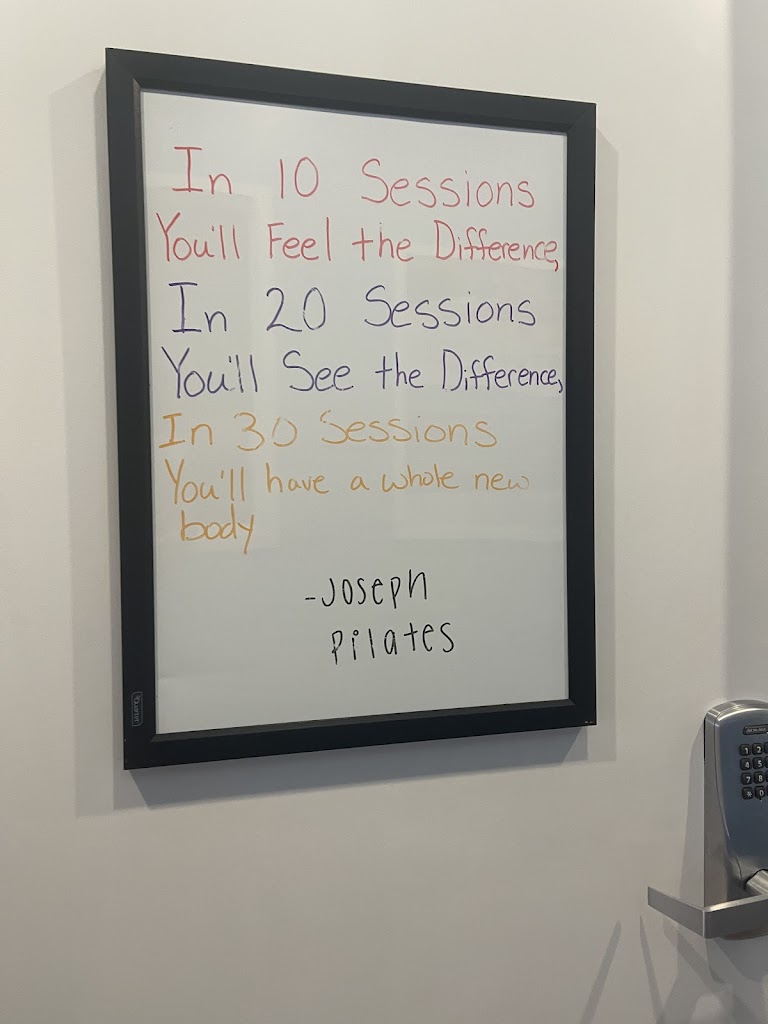 In 10 Sessions
You'll Feel the Difference,
In 20 Sessions
You'll See the Difference,
In 30 Sessions
You'll have a whole new
body
-Joseph
Pilates
Quartet
1 2
4 5
7 8
* 0